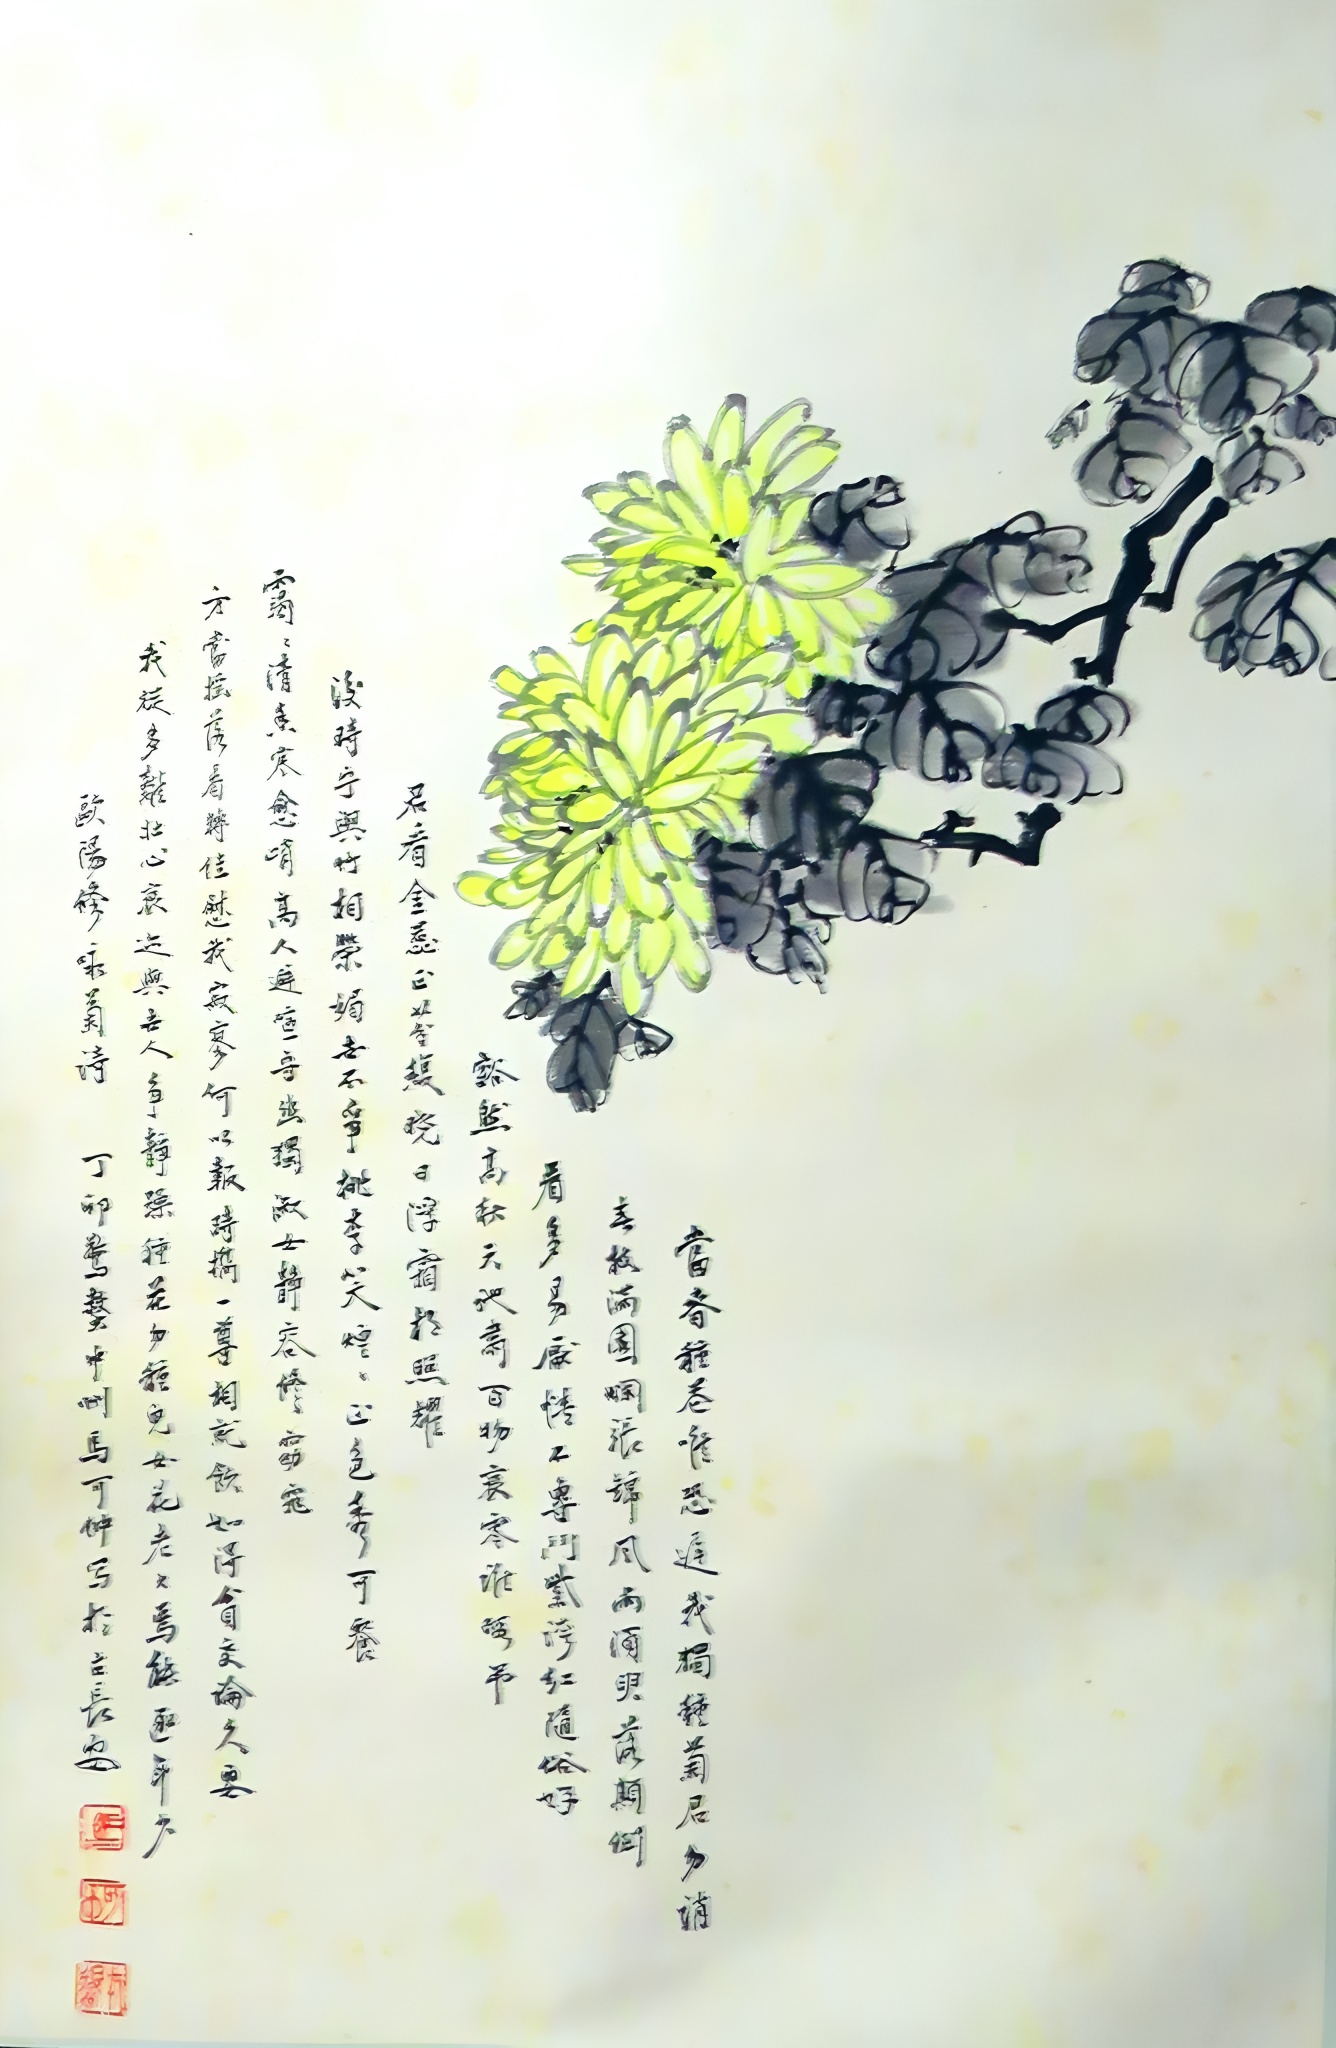 當春種花唯恐遲我獨種菊君勿誚
春枝滿園爛張錦風雨須臾落顛倒
看多易厭情不專鬥紫誇紅隨俗好
豁然高秋天地肅百物衰零誰暇吊
君看金蕊正芬敷曉日浮霜相照耀
後時寧與竹相榮媚世不爭桃李笑煌〻正色秀可餐
靄〻清香寒愈峭高人避喧守幽獨淑女靜容修窈窕
方當搖落看轉佳慰我寂寥何以報時攜一尊相就飲如得貧交論久要
我從多難壯心衰迹與世人爭靜躁種花勿種兒女花老大焉能逐年少
歐陽修咏菊詩 丁卯驚蟄中州馬可 写於古長安